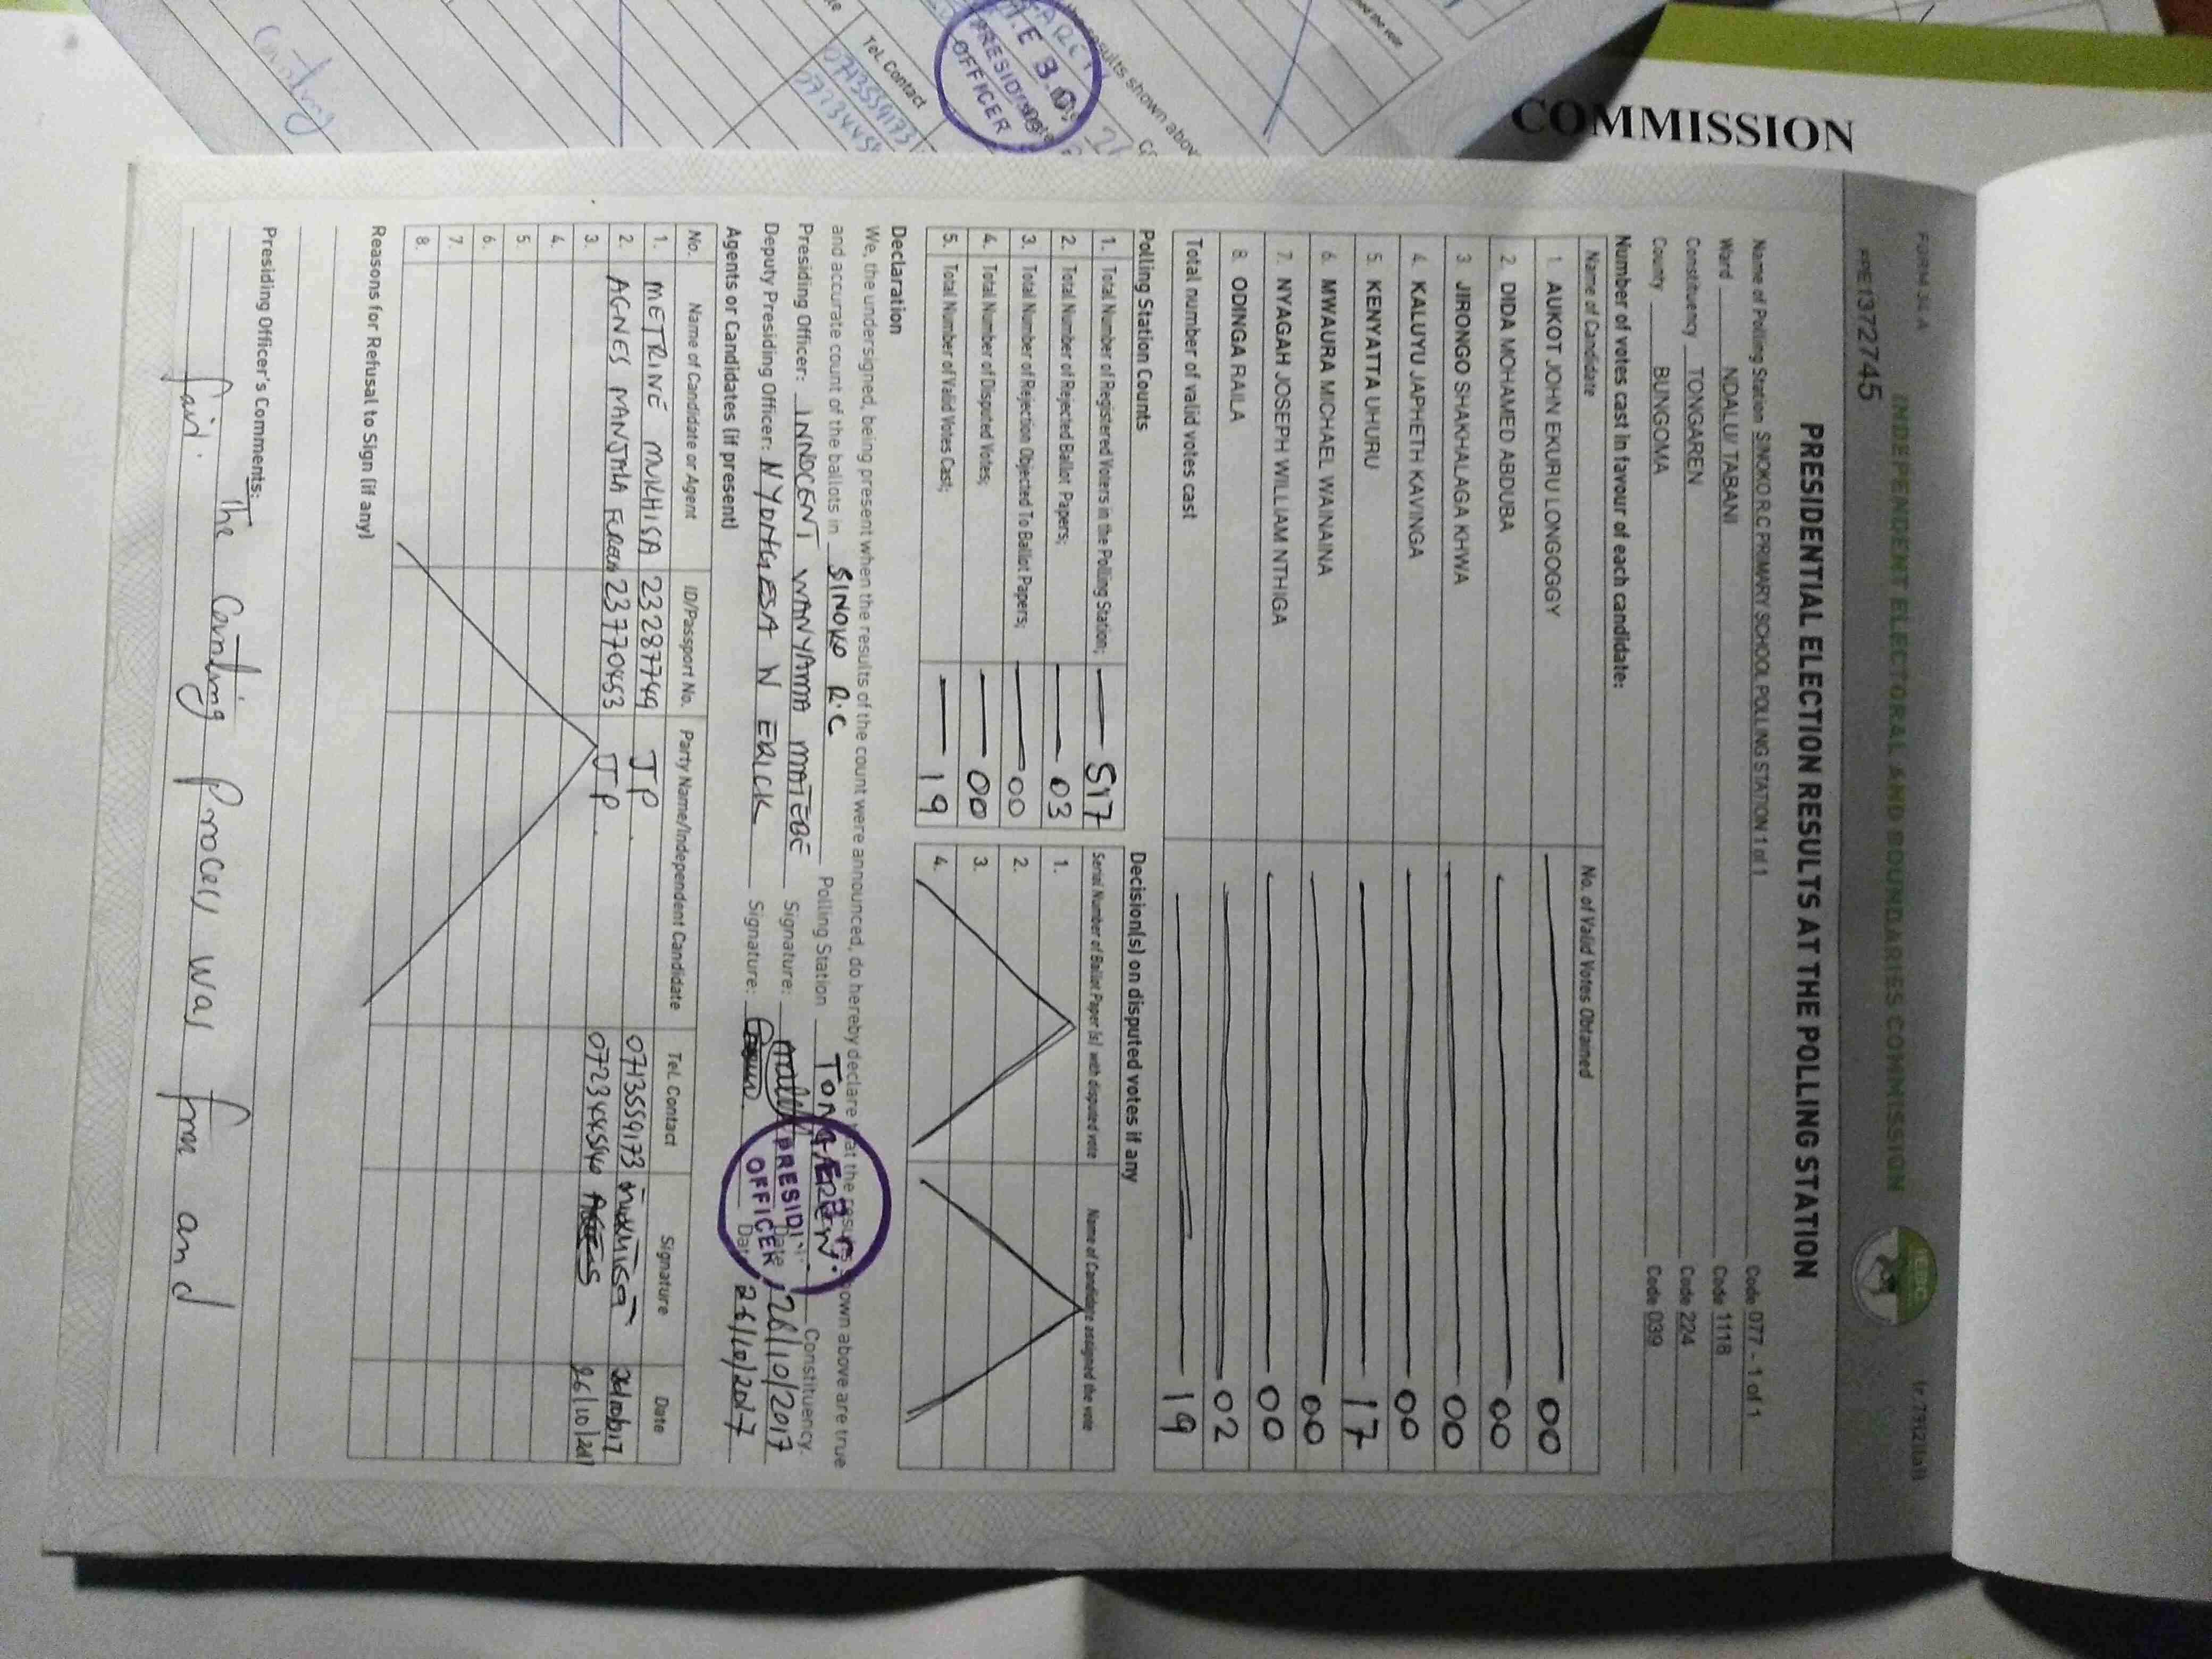 COMMISSION
FORM 34 A
(r.79(2)(a))
INDEPENDENT ELECTORAL AND BOUNDARIES COMMISSION
IEBC
PRE1372745
PRESIDENTIAL ELECTION RESULTS AT THE POLLING STATION
Name of Polling Station SINOKO R.C PRIMARY SCHOOL POLLING STATION 1 of 1 Code 077 - 1 of 1
Ward NDALU/ TABANI Code 1118
Constituency TONGAREN Code 224
County BUNGOMA Code 039
Number of votes cast in favour of each candidate:
Name of Candidate No. of Valid Votes Obtained
1. AUKOT JOHN EKURU LONGOGGY 00
2. DIDA MOHAMED ABDUBA 00
3. JIRONGO SHAKHALAGA KHWA 00
4. KALUYU JAPHETH KAVINGA 00
5. KENYATTA UHURU 17
6. MWAURA MICHAEL WAINAINA 00
7. NYAGAH JOSEPH WILLIAM NTHIGA 00
8. ODINGA RAILA 02
Total number of valid votes cast 19
Polling Station Counts
1. Total Number of Registered Voters in the Polling Station; 517
2. Total Number of Rejected Ballot Papers; 03
3. Total Number of Rejection Objected To Ballot Papers; 00
4. Total Number of Disputed Votes; 00
5. Total Number of Valid Votes Cast; 19
Decision(s) on disputed votes if any
Serial Number of Ballot Paper (s) with disputed vote Name of Candidate assigned the vote
1.
2.
3.
4.
Declaration
We, the undersigned, being present when the results of the count were announced, do hereby declare that the results shown above are true
and accurate count of the ballots in SINOKO R.C Polling Station TONGAREN Constituency.
Presiding Officer: INNOCENT WANYAMA MATEBE Signature: Date 26/10/2017
Deputy Presiding Officer: NYONGESA W ERICK Signature: Date 26/10/2017
PRESIDING
OFFICER
Agents or Candidates (if present)
No. Name of Candidate or Agent ID/Passport No. Party Name/Independent Candidate Tel. Contact Signature Date
1. METRINE MUKHISA 23287749 JP. 0713559173 26/10/2017
2. AGNES NANJALA 23770453 JP. 26/10/2017
3.
4.
5.
6.
7.
8.
Reasons for Refusal to Sign (if any)
Presiding Officer's Comments: The Counting Process was free and
fair.
Tel. Contact
0713559173
PRESIDING
OFFICER
results shown above
Counting